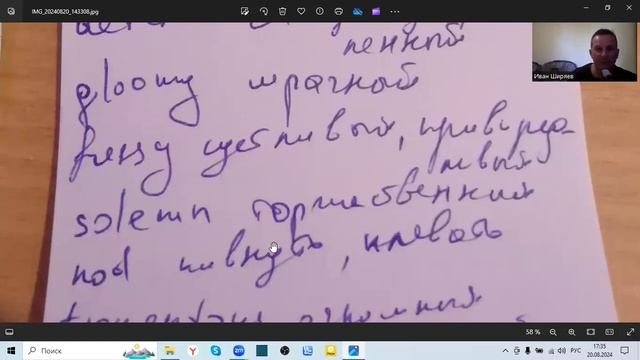 IMG_20240820_143308.jpg
Иван Ширяев
пенный
gloomy мрачный
fussy суетливый, привередливый
solemn торжественный
nod кивнуть, кивать
огромный
58 %
Поиск
РУС
17:35
20.08.2024